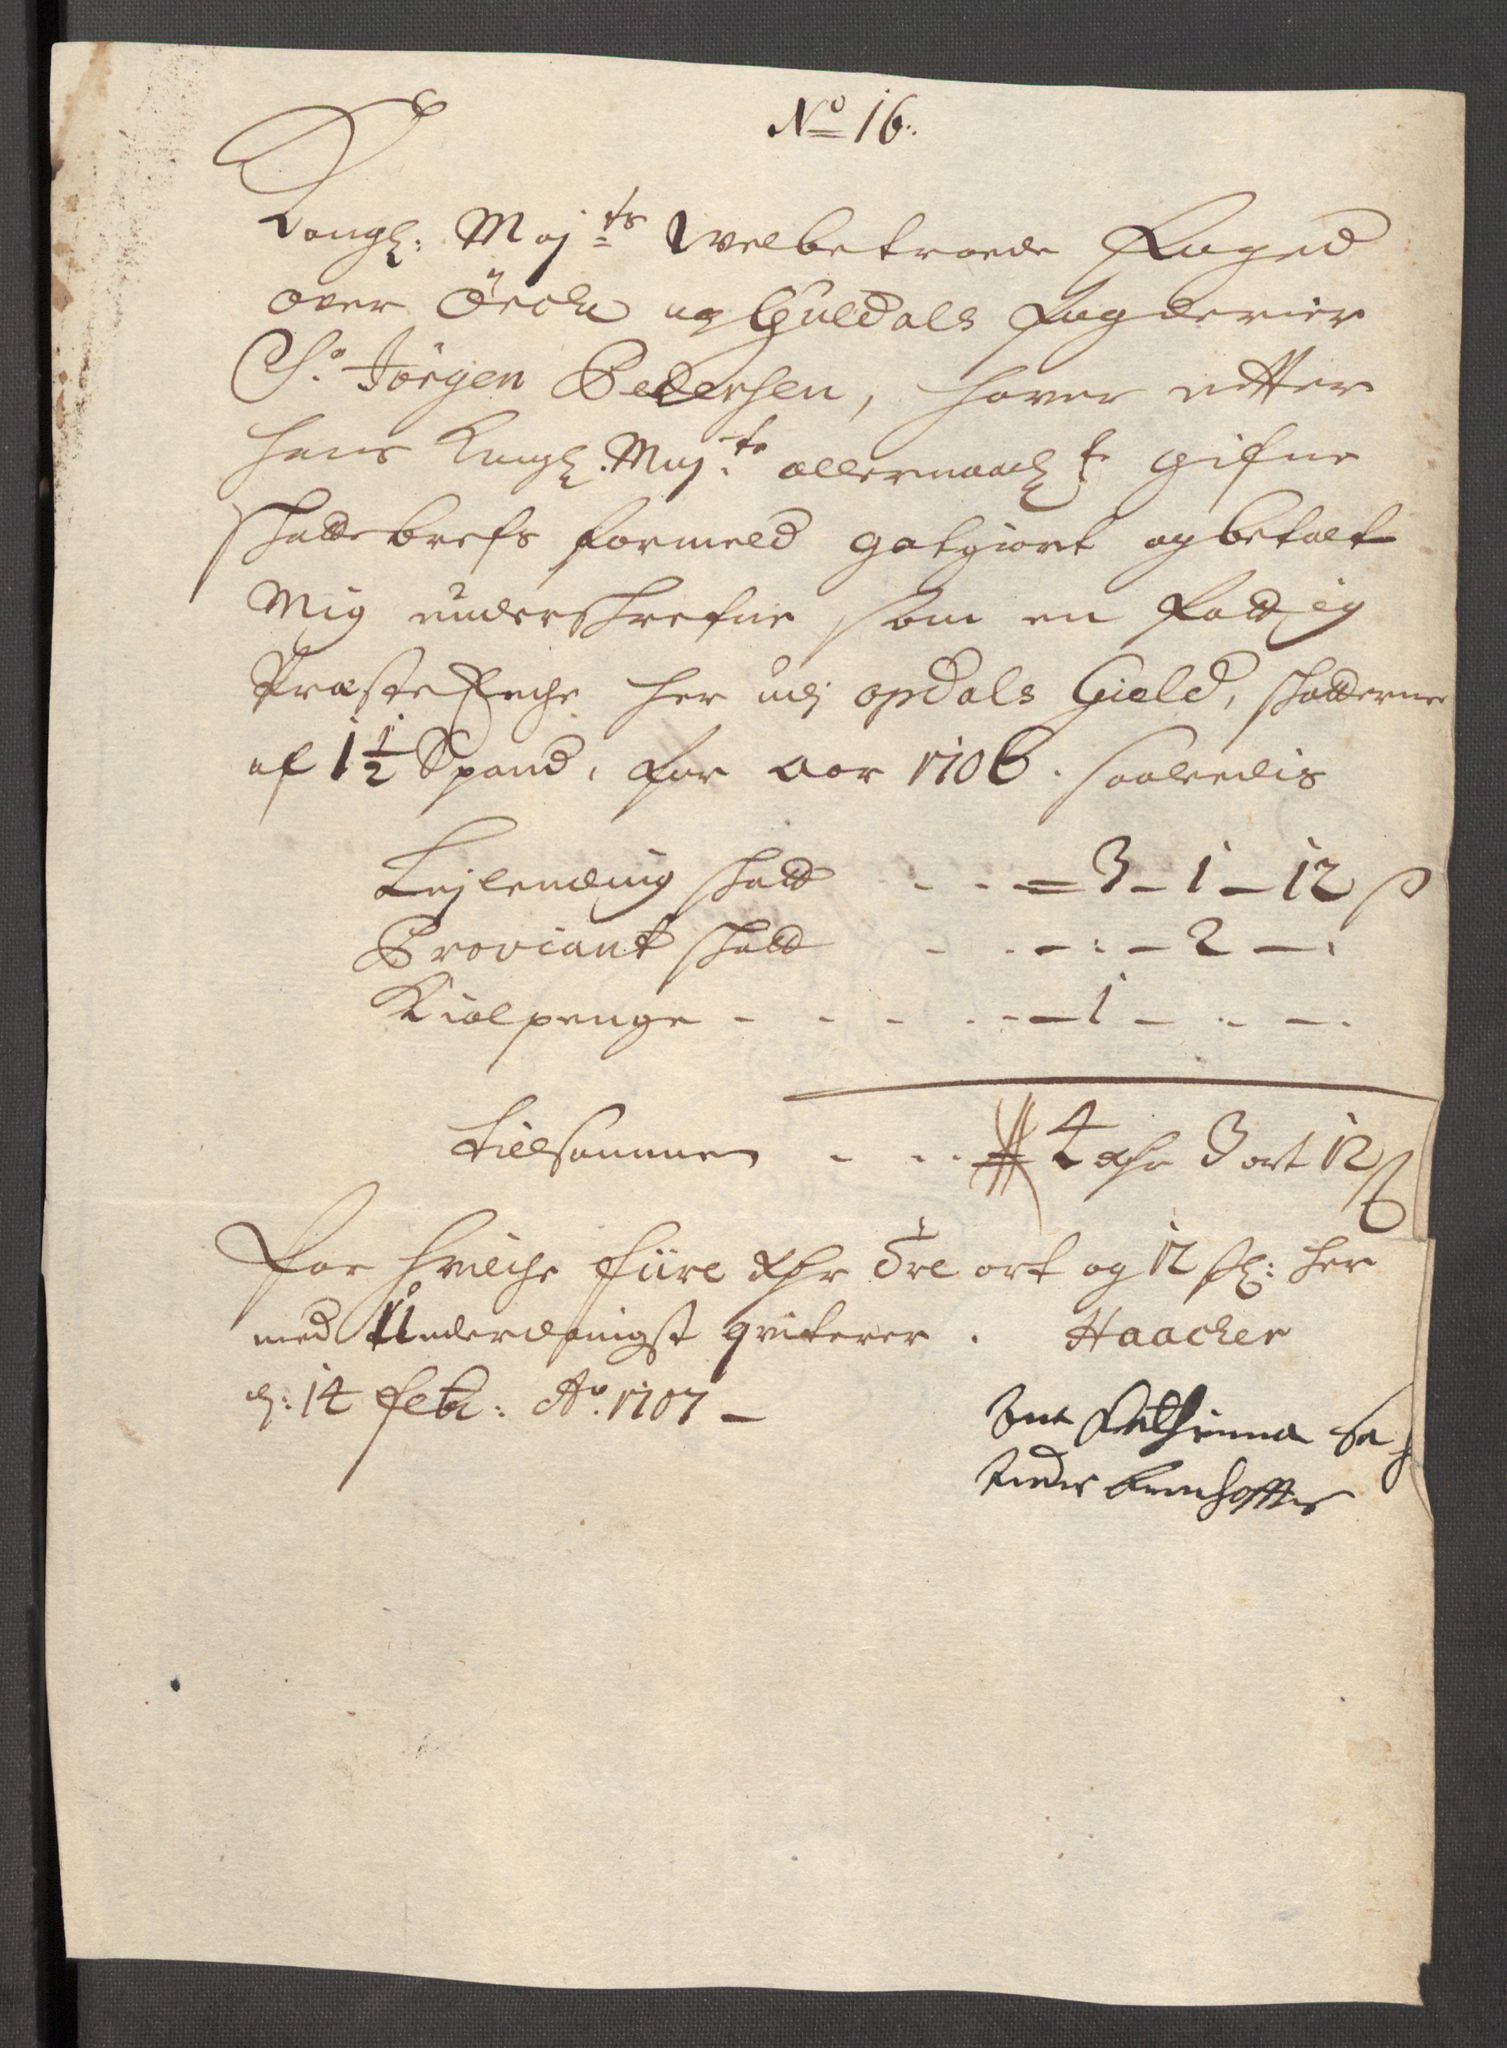 No 16.
Kongl: Maj:ts Welbetroede Foged
over Örche og Guldals Fogderier
Sr. Jörgen Pedersen, hafver effter
hans Kongl. Maj:ts allernaad:t gifne
schattebrefs formeld gotgiort og betalt
Mig underschrefne som en Fattig
Præste Enche her udj opdals Gield, schatterne
af 1 1/2 Spand, for aar 1706. saaledis
Lejlending schatt - - = 3 - 1 - 12 s
Proviant schatt - - - : - 2 - .
Kiolpenge - - - - - 1 - . - .
tilsammen - - - 4 rhr 3 ort 12 s
For hvilche fiire rhr Tre ort og 12 sl: her
med Underdanigst qviterer . Haacher
d: 14 Feb: Ao. 1707 -